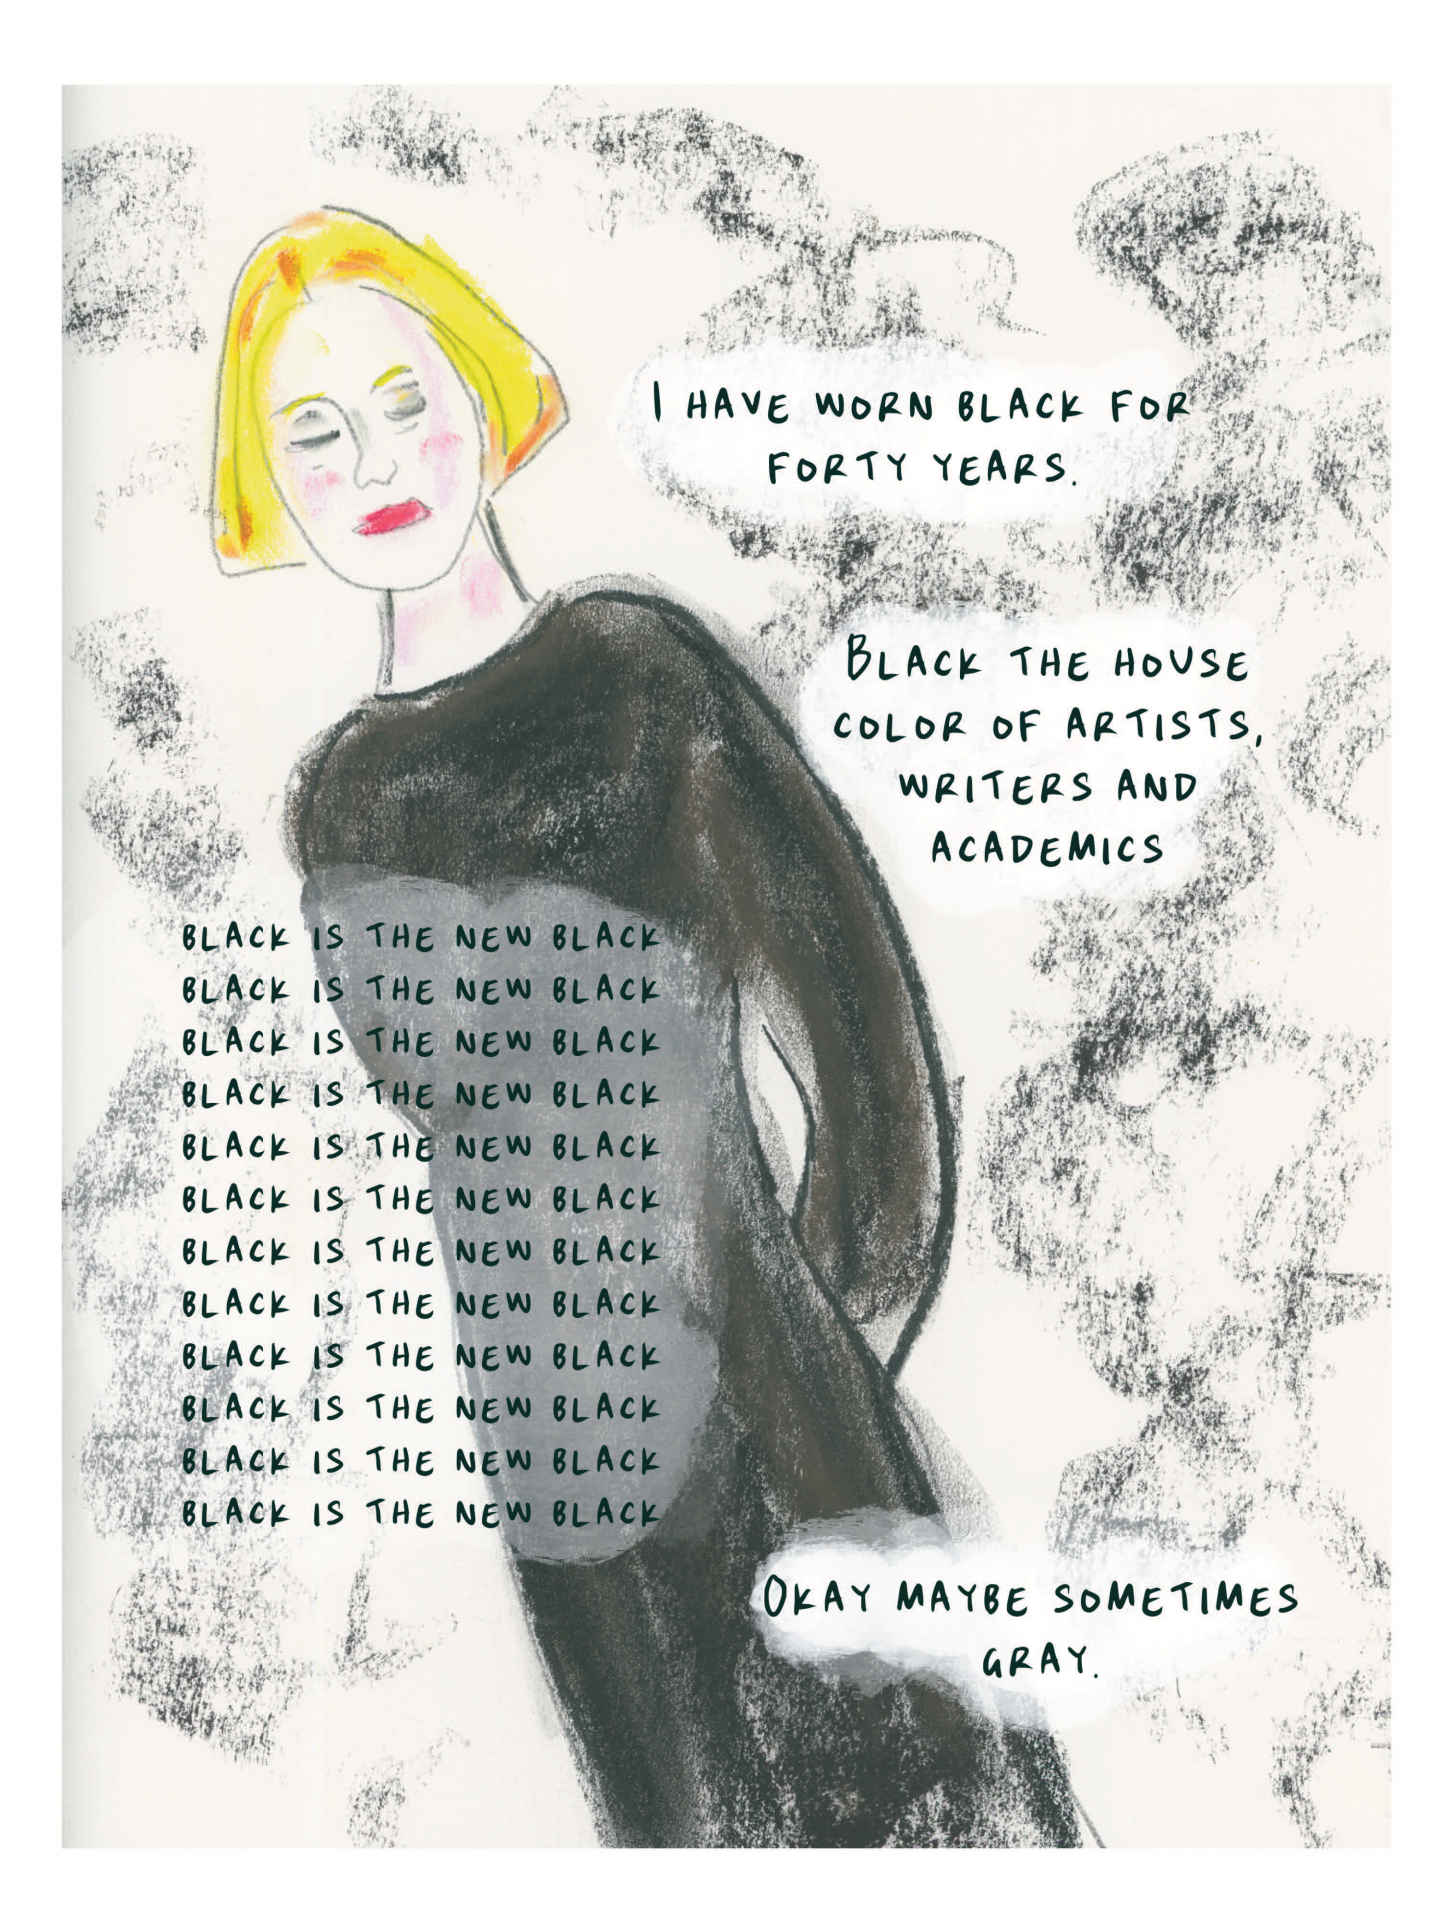 I HAVE WORN BLACK FOR
FORTY YEARS.
BLACK THE HOUSE
COLOR OF ARTISTS,
WRITERS AND
ACADEMICS
BLACK IS THE NEW BLACK
BLACK IS THE NEW BLACK
BLACK IS THE NEW BLACK
BLACK IS THE NEW BLACK
BLACK IS THE NEW BLACK
BLACK IS THE NEW BLACK
BLACK IS THE NEW BLACK
BLACK IS THE NEW BLACK
BLACK IS THE NEW BLACK
BLACK IS THE NEW BLACK
BLACK IS THE NEW BLACK
BLACK IS THE NEW BLACK
OKAY MAYBE SOMETIMES
GRAY.